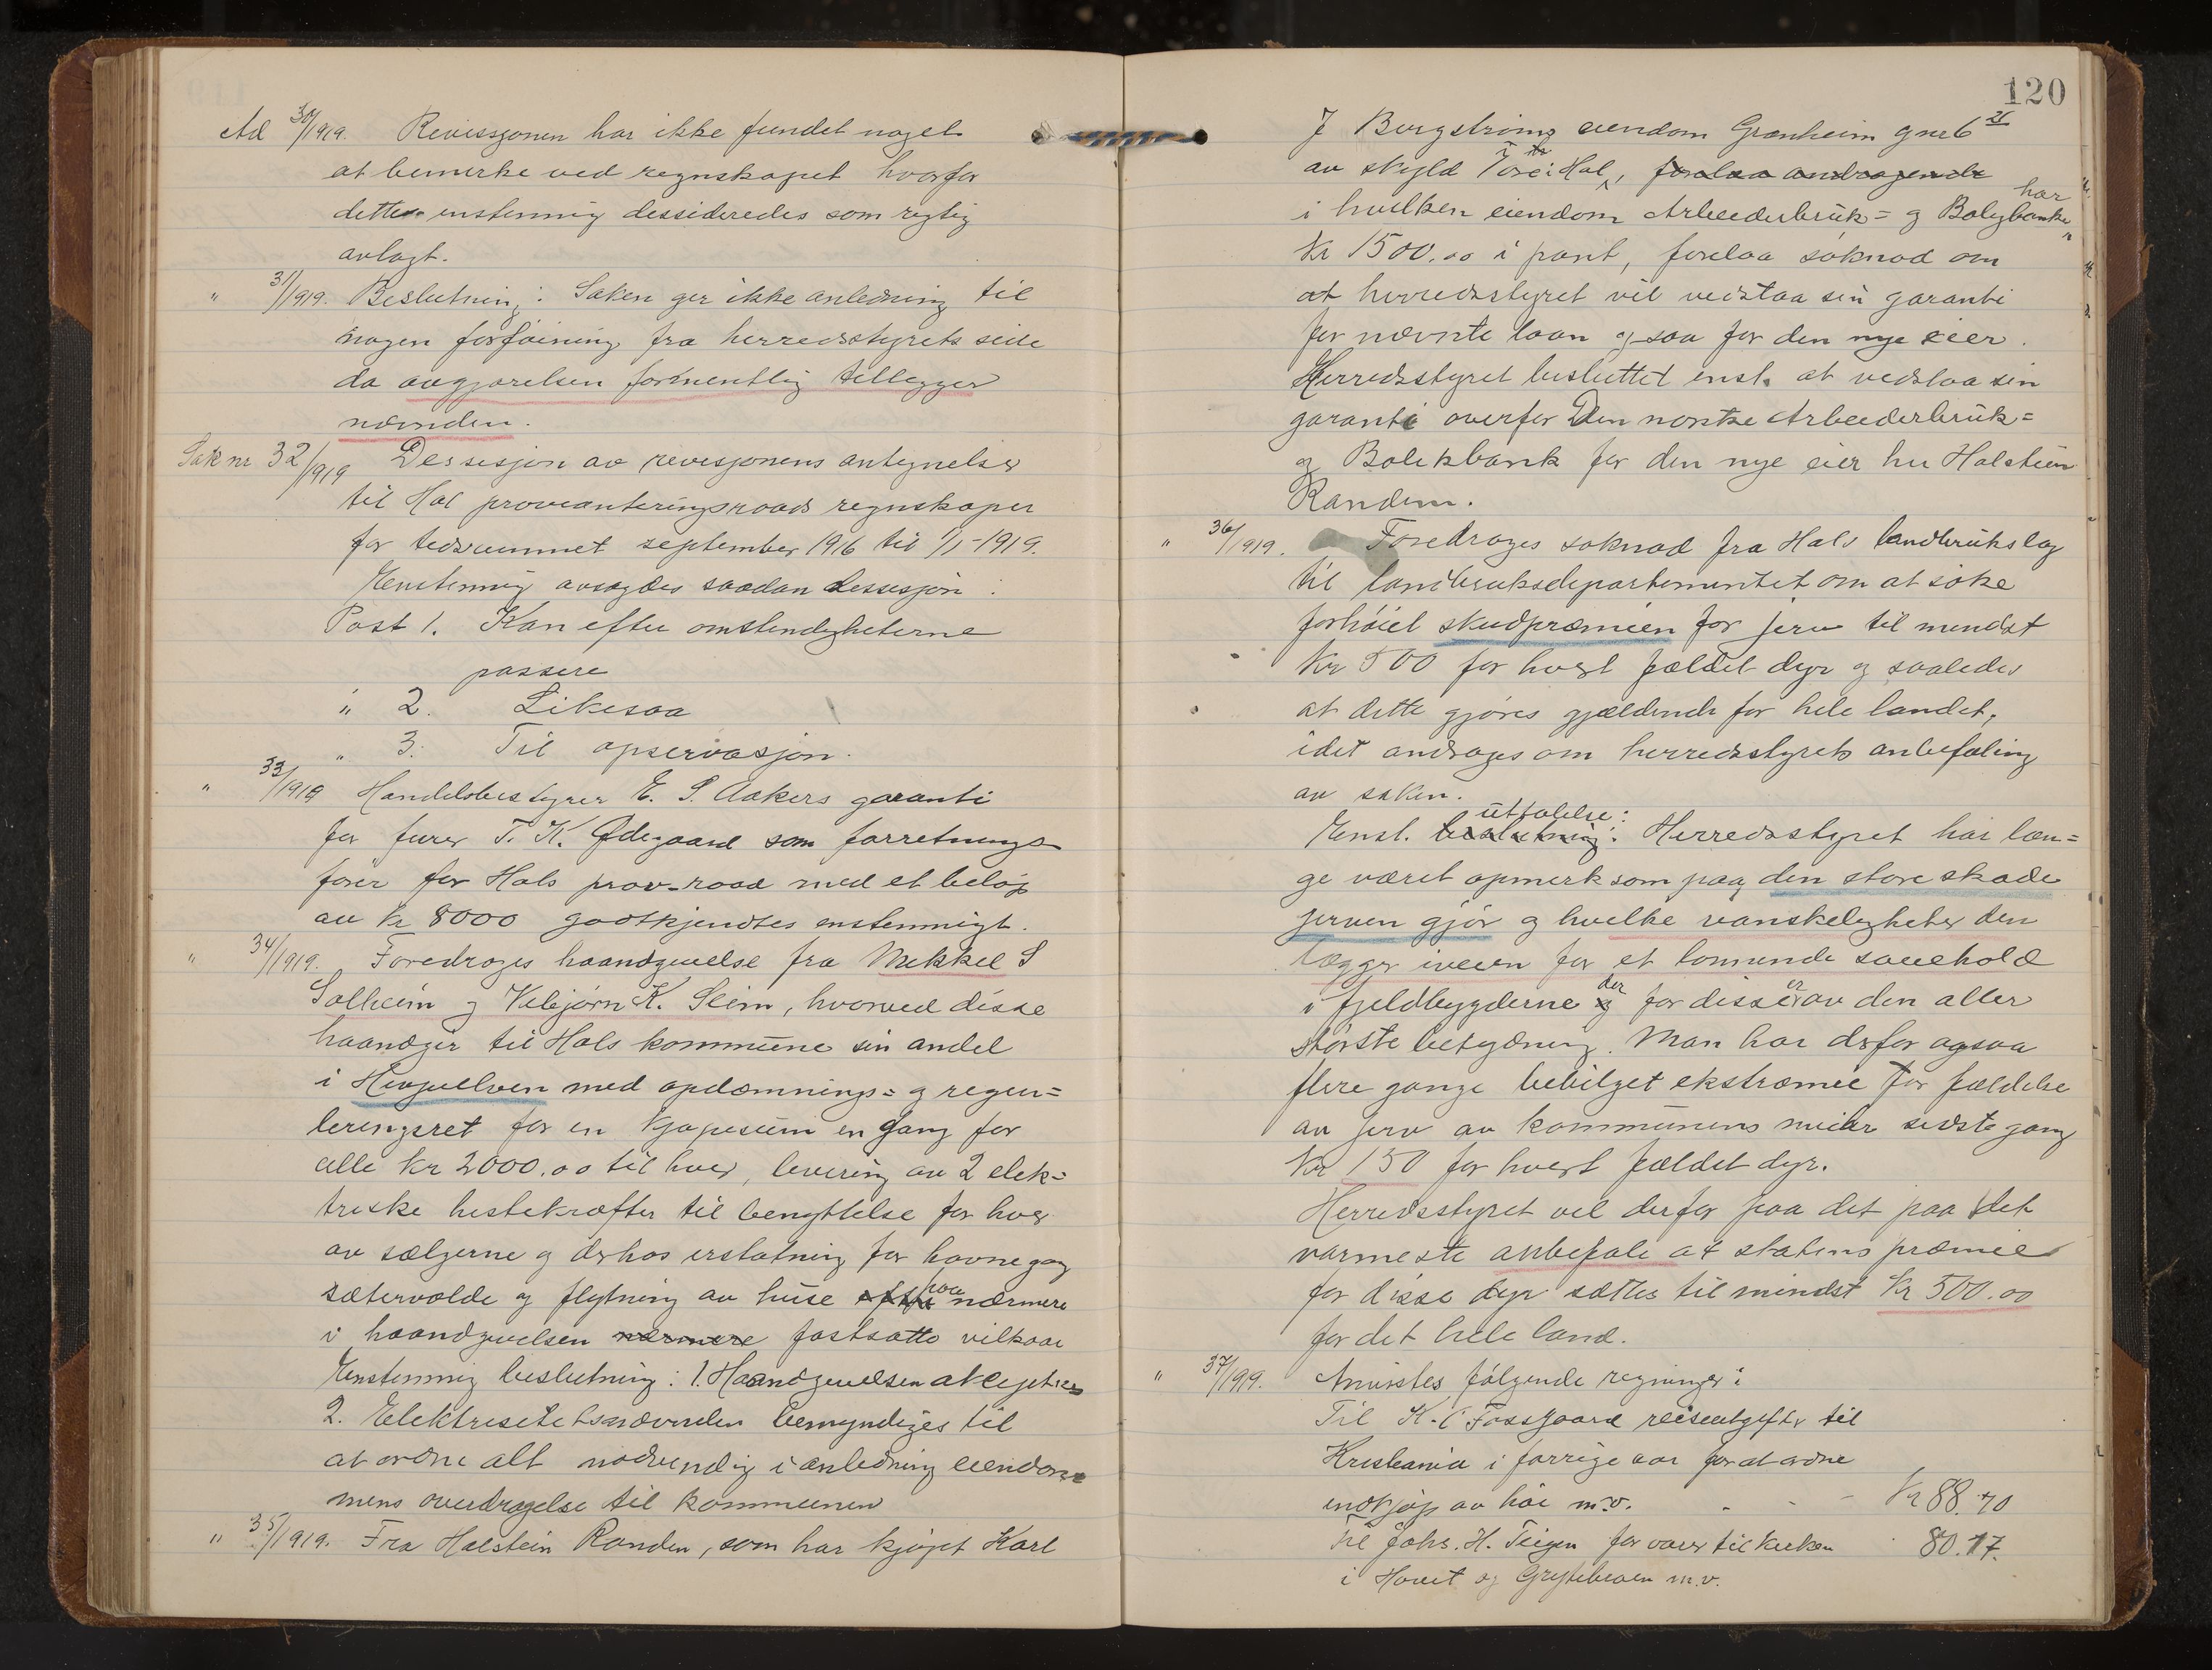 Ad 30/1919. Revissjonen har ikke fundet noget
at bemerke ved regnskapet hvorfor
dette enstemmig dessideredes som rigtig
avlagt.
" 31/1919. Beslutning: Saken ger ikke anledning til
nogen forföining fra herredsstyrets side
da avgjörelsen formentlig tillegger
nevnden.
Sak nr 32/1919 Dessisjon av revisjonens antegnelser
til Hol provianteringsraads regnskaper
for tidsrummet september 1916 til 1/1-1919.
Enstemmig avsagdes saadan dessisjon:
Post 1. Kan efter omstendigheterne
passere
" 2. Likesaa
" 3. Til opservasjon.
" 33/1919 Handelsbestyrer E. S. Aakers garanti
for furer T. K. Ødegaard som forretnings
förer for Hols prov-raad med et belöp
av kr 8000 godtkjendtes enstemmigt.
" 34/1919. Foredroges haandgivelse fra Mekkel S
Solheim og Vebjörn K. Seim, hvorved disse
haandgir til Hols kommune sin andel
i Hivjuelven med opdæmnings= og regu=
leringsret for en kjöpesum en gang for
alle Kr 2000.00 til hver, levering av 2 elek=
triske hestekræfter til benyttelse for hver
av sælgerne og derhos erstatning for havnegang
sætervolde og flytning av huse paa nærmere
i haandgivelsen nærmere fastsatte vilkaar
Enstemmig beslutning: 1. Haandgivelsen akseptres
2. Elektrisitetsnævnden bemyndiges til
at ordne alt nödvendig i anledning eiendom
mens overdragelse til kommunen
" 35/1919. Fra Halstein Randen, som har kjöpt Karl
120
J Bergströms eiendom Granheim gnr 6 21
av skyld 1 öre i Hol, forelaa andragende
i hvilken eiendom Arbeiderbruk= og Boligbanken har
Kr 1500.00 i pant, forelaa söknad om
at herredsstyret vil vedstaa sin garanti
for nævnte laan ogsaa for den nye eier.
Herredsstyret besluttet enst. at vedstaa sin
garanti overfor Den norske Arbeiderbruk=
og Bolikbank for den nye eier hr Halstein
Randen.
" 36/1919. Foredroges söknad fra Hols landbrukslag
til landbruksdepartementet om at söke
forhöiet skudpræmien for jerv til mindst
Kr 500 for hvert fældet dyr og saaledes
at dette gjöres gjældende for hele landet,
idet androges om herredsstyrets anbefaling
av saken.
uttalelse:
Enst. beslutning: Herredsstyret har læn=
ge været opmerksom paa den store skade
jerven gjör og hvilke vanskeligheter den
lægger iveien for et lönnende sauehold
i fjeldbygderne og der for disse er av den aller
störste betydning. Man har derfor ogsaa
flere gange bevilget ekstræmie for fældelse
av jerv av kommunens midler sidste gang
Kr 150 for hvert fældet dyr.
Herredsstyret vil derfor paa det paa det
varmeste anbefale at statens præmie
for disse dyr sættes til mindst Kr 500.00
for det hele land.
" 37/1919. Anvistes fölgende regninger:
Til K. Fossgaard reiseutgifter til
Kristiania i forrige aar for at ordne
indkjöp av höi m.v. - - - Kr 88.70
Til Johs. H. Teigen for varer til kirken 80.17.
i Hovet og Grytebraaen m.v.